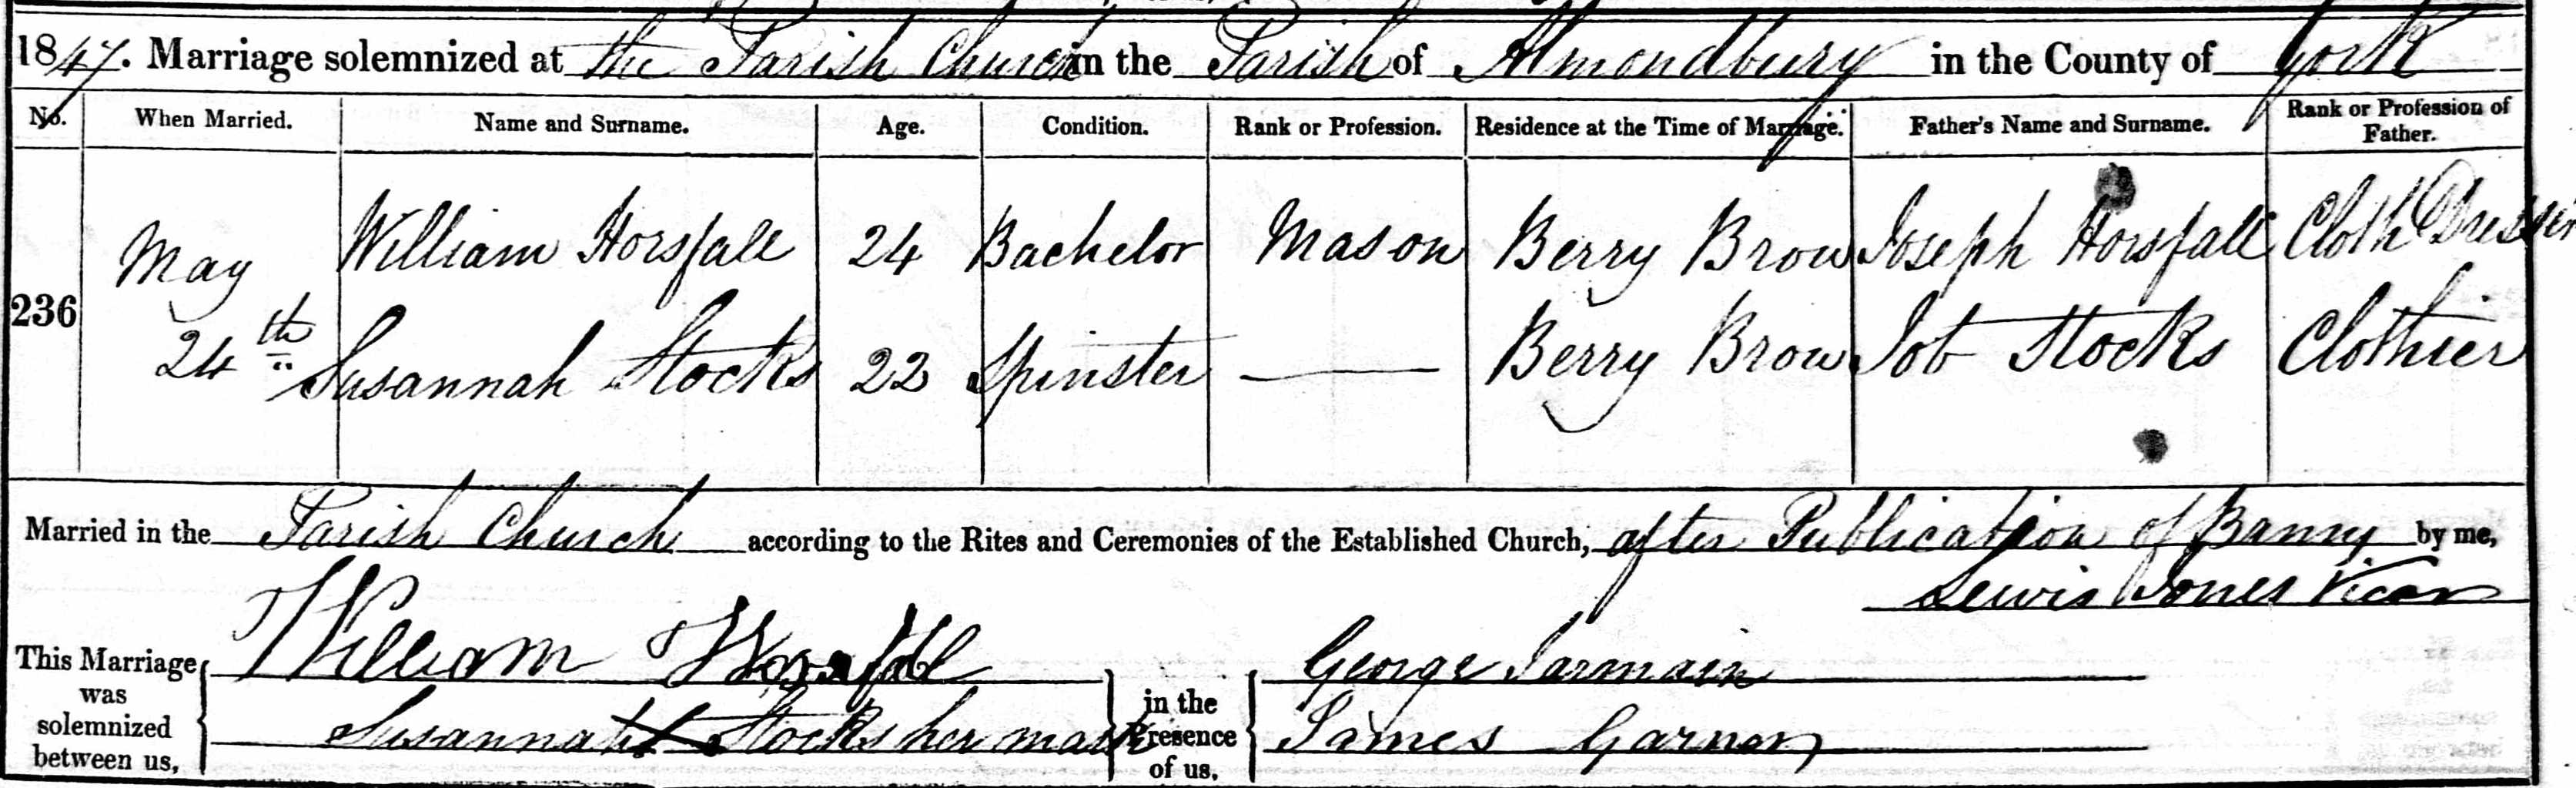 1847. Marriage solemnized at the Parish Church in the Parish of Almondbury in the County of York
No. When Married. Name and Surname. Age. Condition. Rank or Profession. Residence at the Time of Marriage. Father's Name and Surname. Rank or Profession of Father.
236 May 24th William Horsfall 24 Bachelor Mason Berry Brow Joseph Horsfall Cloth Dresser
Susannah Stocks 22 Spinster — Berry Brow Job Stocks Clothier
Married in the Parish Church according to the Rites and Ceremonies of the Established Church, after Publication of Banns by me,
Lewis Jones Vicar
This Marriage was solemnized between us, William Horsfall in the Presence of us, George Jarmain
Susannah X Stocks her mark James Garner